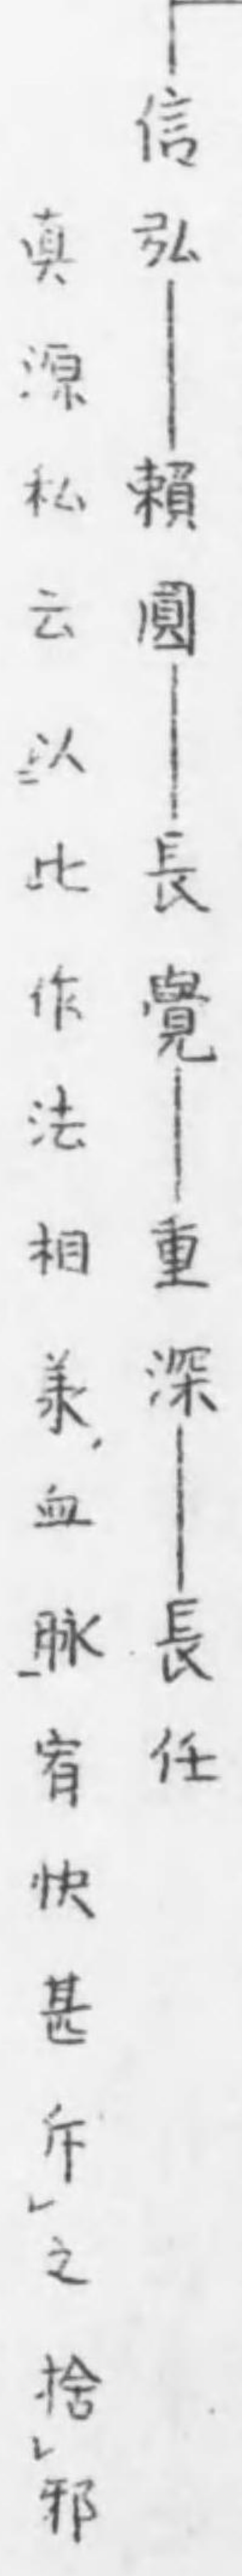 信弘―賴圓―長覺―重深―長任
真源私云以此作法相羕血脉宥快甚斥之捨邪